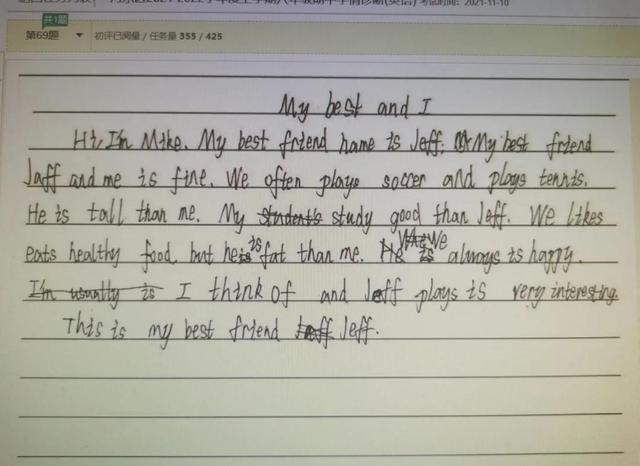 2021-2022学年度上学期八年级期中学情诊断(英语) 考试时间：2021-11-10
共1题
第69题 初评已阅量 / 任务量 355 / 425
My best and I
Hi, I'm Mike. My best friend name is Jeff. My best friend
Jaff and me is fine. We often plays soccer and plays tennis.
He is tall than me. My student's study good than Jeff. We likes
eats healthy food, but he is fat than me. We is always is happy.
I'm usually is I think of and Jeff plays is very interesting.
This is my best friend Jeff Jeff.